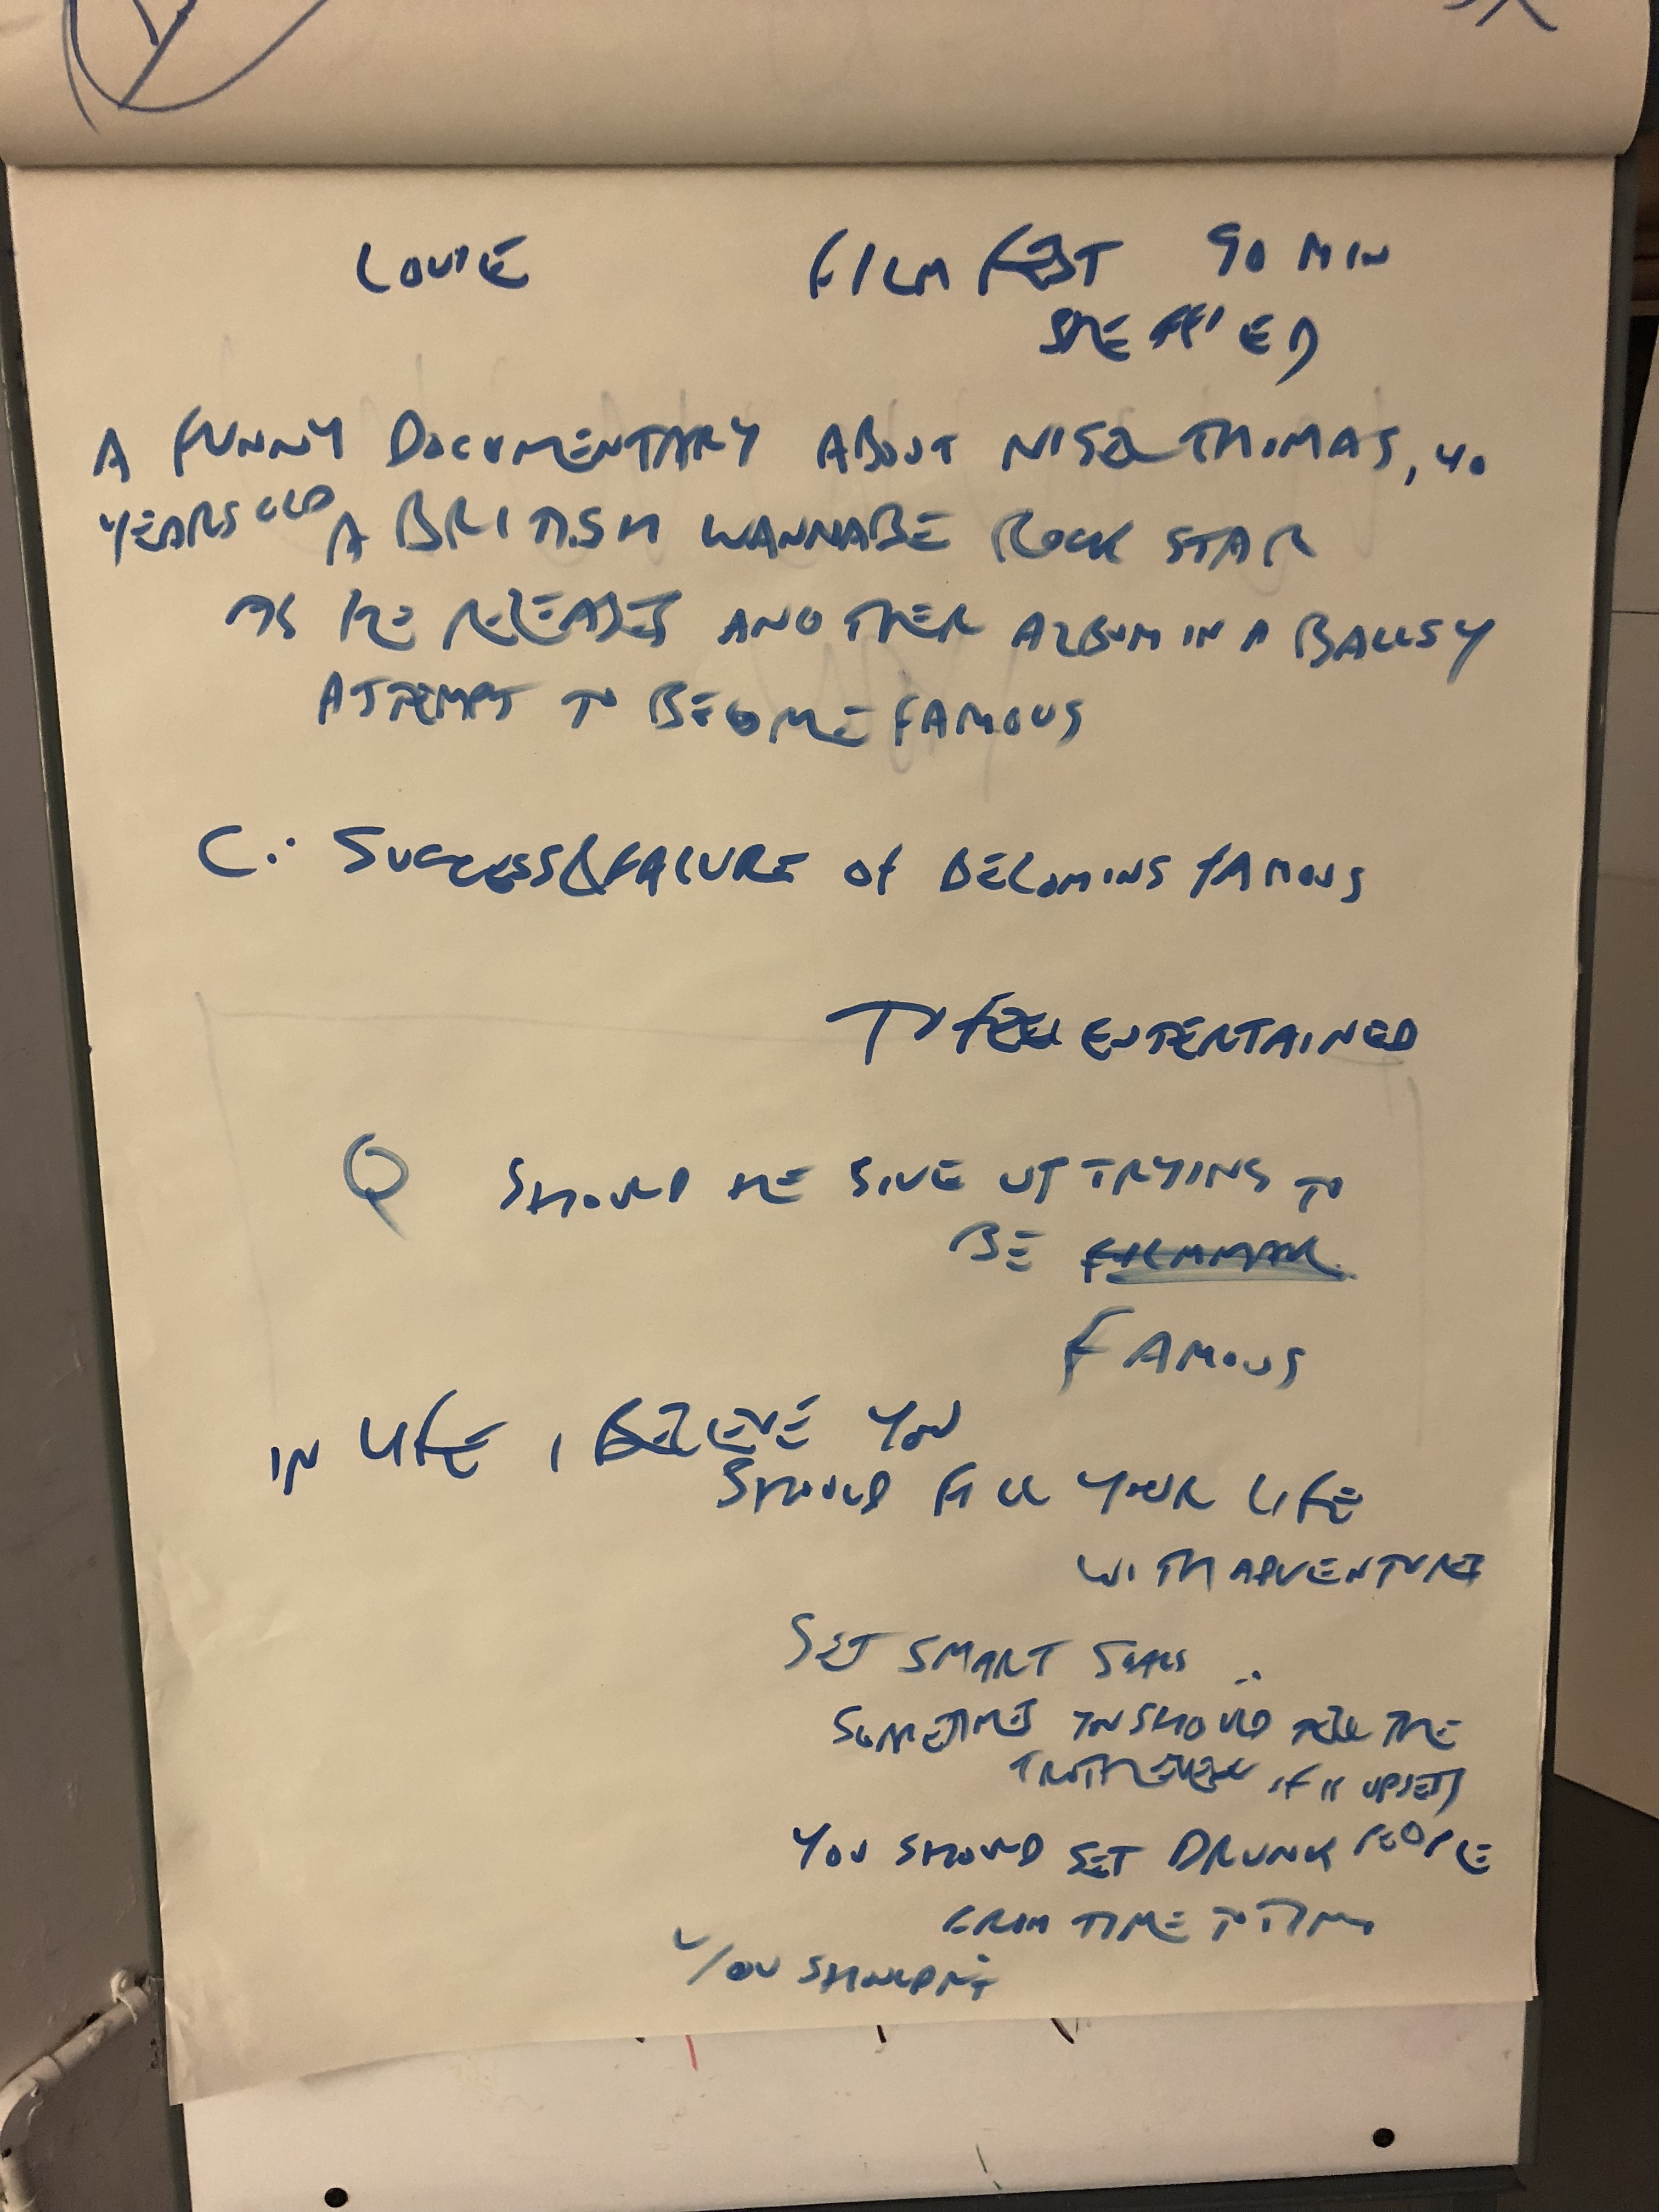 LOUIE FILM FEST 90 MIN
SHEFFIED
A FUNNY DOCUMENTARY ABOUT NIGEL THOMAS, 40
YEARS OLD A BRITISH WANNABE ROCK STAR
AS HE RELEASES ANOTHER ALBUM IN A BALLSY
ATTEMPT TO BECOME FAMOUS
C: SUCCESS & FAILURE OF BECOMING FAMOUS
TO FEEL ENTERTAINED
Q SHOULD HE GIVE UP TRYING TO
BE
FAMOUS
IN LIFE, I BELIEVE YOU
SHOULD FILL YOUR LIFE
WITH ADVENTURE
SET SMART GOALS ..
SOMETIMES YOU SHOULD TELL THE
TRUTH EVEN IF IT UPSETS
YOU SHOULD GET DRUNK PEOPLE
FROM TIME TO TIME
YOU SHOULDN'T